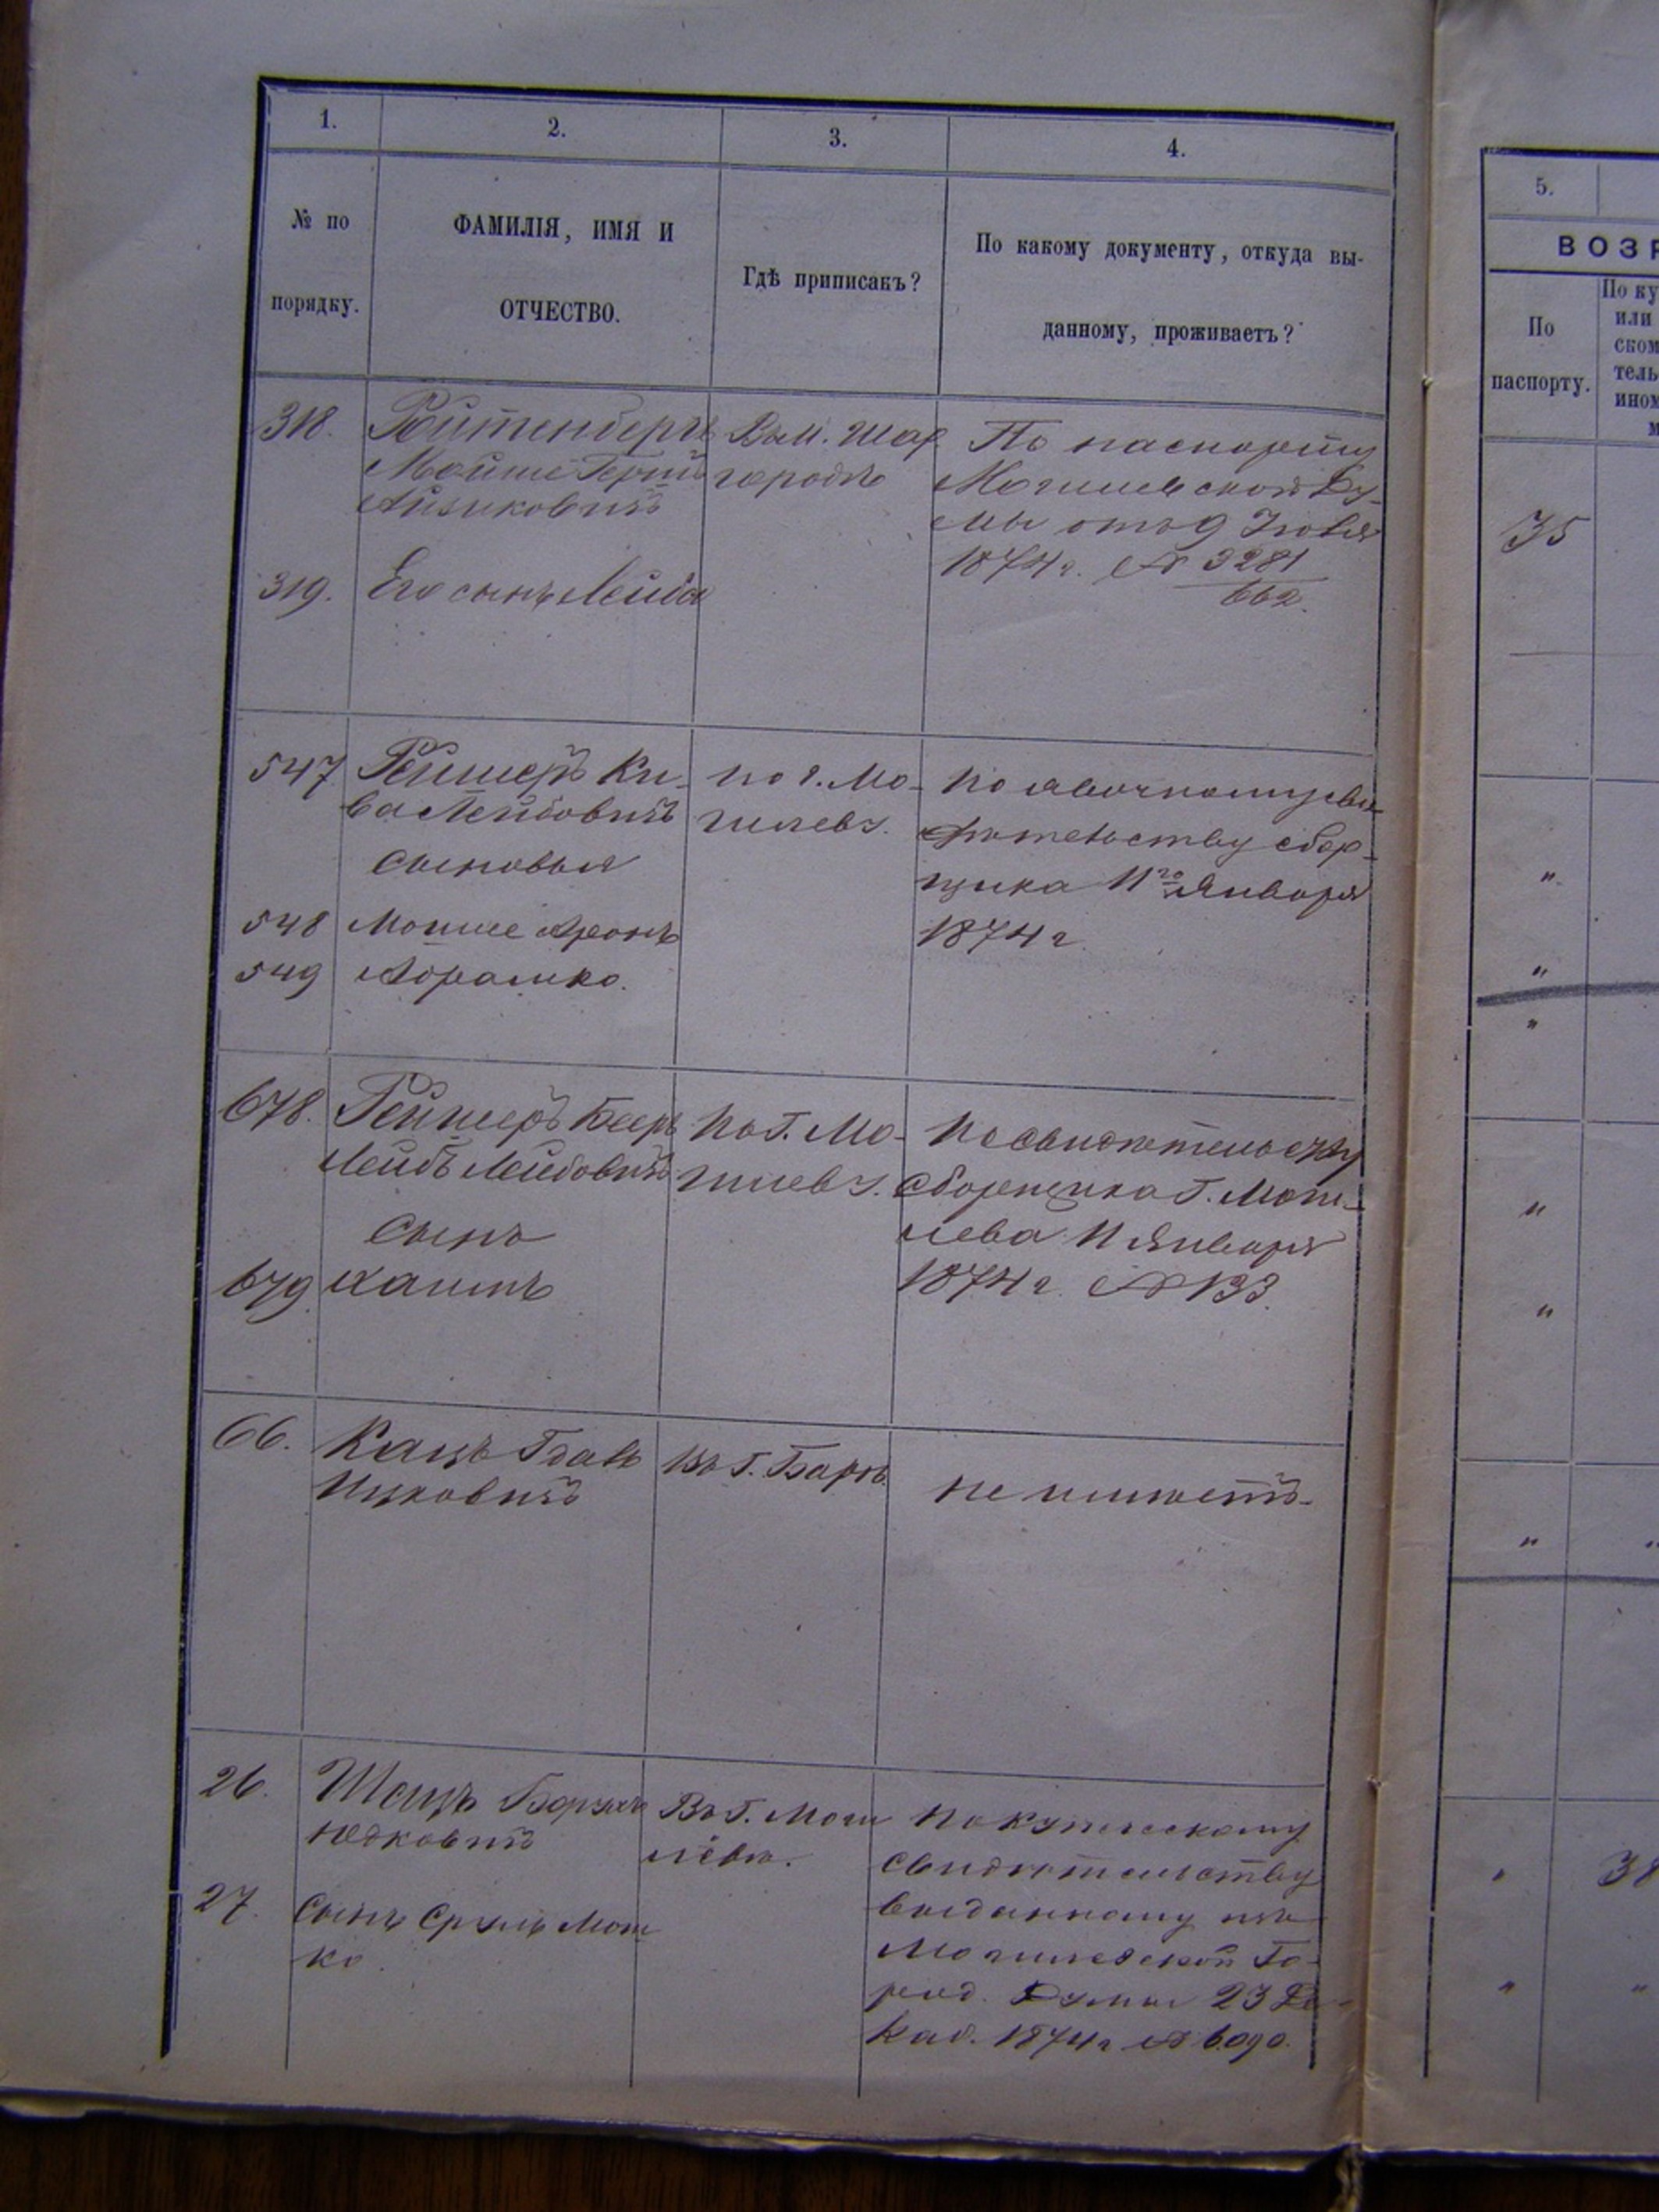 1.
2.
3.
4.
№ по
порядку.
ФАМИЛІЯ, ИМЯ И
ОТЧЕСТВО.
Гдѣ приписанъ?
По какому документу, откуда вы-
данному, проживаетъ?
318.
Ройтенбергъ
Мойше Герш
Айзиковичъ
Въ м. Шар
городѣ
По паспорту
Могилевской Ду-
мы отъ 9 Іюля
1874 г. № 3281
662.
319.
Его сынъ Лейба
547
Рейшеръ Ки-
ва Лейбовичъ
сыновья
по г. Мо-
гилеву.
по явочному сви-
дѣтельству сбор-
щика 11го Января
1874 г.
548
Мошше Аронъ
549
Абрашко.
678.
Рейшеръ Беръ
Лейбъ Лейбовичъ
сынъ
по г. Мо-
гилеву.
По свидѣтельству
сборщика г. Моги-
лева 11 Января
1874 г. № 133.
679
Хаимъ
66.
Кацъ
Ицковичъ
Въ г. Барѣ.
не имѣетъ
26.
Шацъ Борухъ
Юдковичъ
Въ г. Моги
левѣ.
По купеческому
свидѣтельству
выданному изъ
Могилевской Го-
род. Думы 23 Де-
каб. 1874 г. № 6090.
27.
Сынъ Сруль Мош
ко.
5.
ВОЗР
По
паспорту.
По ку
или
ском
тель
ином
м
35
"
"
"
"
"
" "
" 38
" "